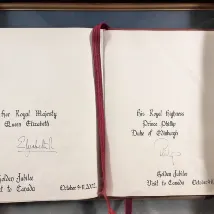 Her Royal Majesty
Queen Elizabeth
Elizabeth R
Golden Jubilee
Visit to Canada October 4-12, 2002
His Royal Highness
Prince Philip
Duke of Edinburgh
Philip
Golden Jubilee
Visit to Canada October